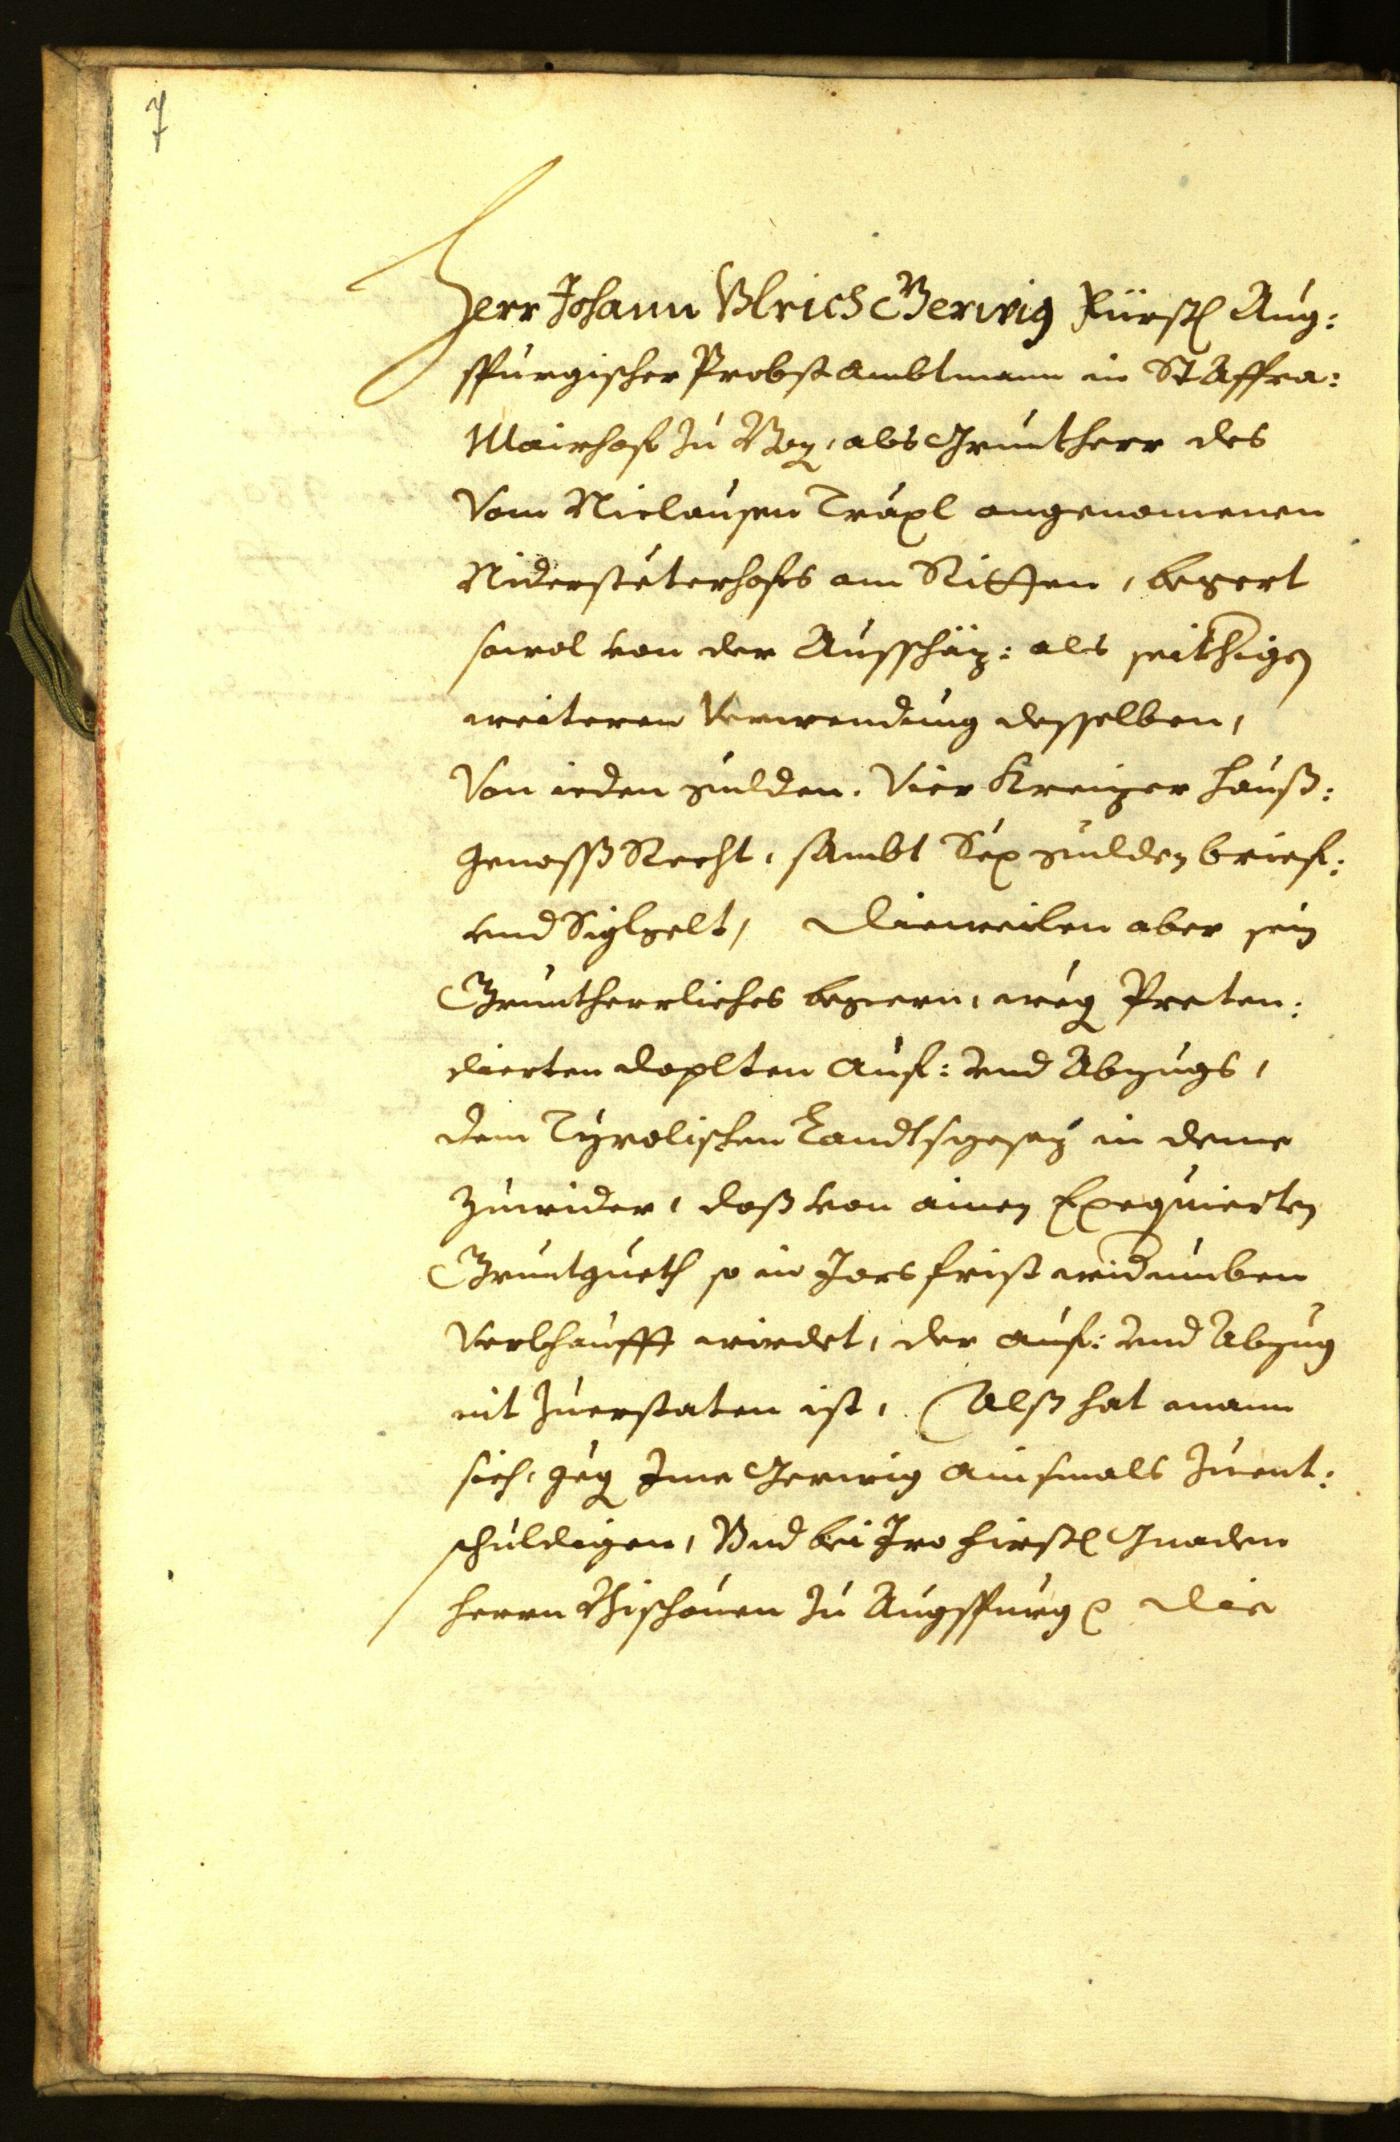 7
Herr Johann Ulrich Gerwig Fürstl Aug:
spurgischer Probst Ambtmann in St Affra:
Mairhof zu Boz, als Gruntherr des
Vom Niclausen Träxl angenomenen
Niderstëterhofs am Ritten, begert
sowol von der Ausschäz: als seithigen
weiteren Verwendung desselben,
Von ieden gulden. Vier Kreizer hauß:
genosß Recht, sambt Sëx gulden brief:
vnd Siglgelt, Dieweilen aber sein
Gruntherrliches begeren, weg Preten:
dierten doplten Auf: vnd Abzugs,
dem Tyrolischen Landtsgesaz in deme
zuwider, daß von ainen Exequierten
Gruntgueth so in Jars frist widumben
Verkhaufft wirdet, der auf: vnd Abzug
nit zuerstaten ist, Alß hat mann
sich, geg Ime Gerwig ainsmals zuent:
schuldigen, Vnd bei Iro Fürstl Gnaden
herrn Bischouen zu Augspurg die